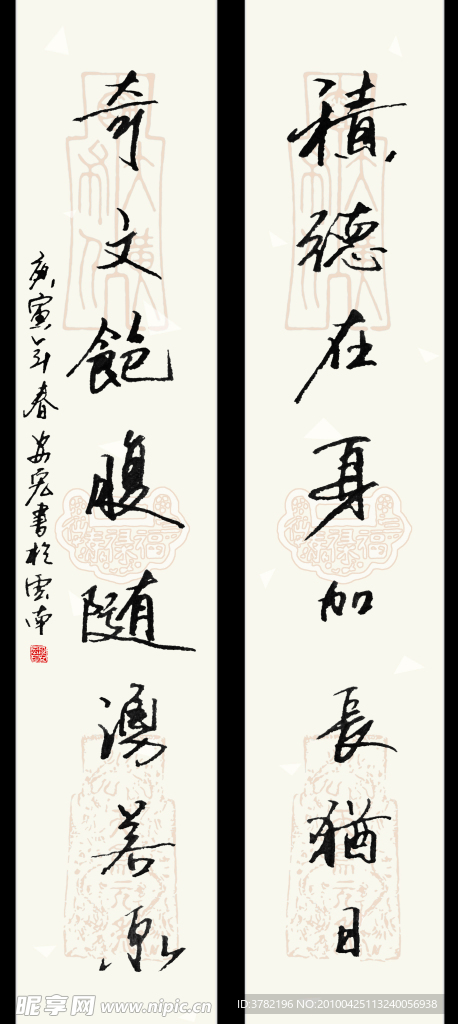 積德在身加長猶日
奇文飽腹隨湧若泉
庚寅年春安宏書於雲南
昵享网 www.nipic.cn
ID:3782196 NO:20100425113240056938